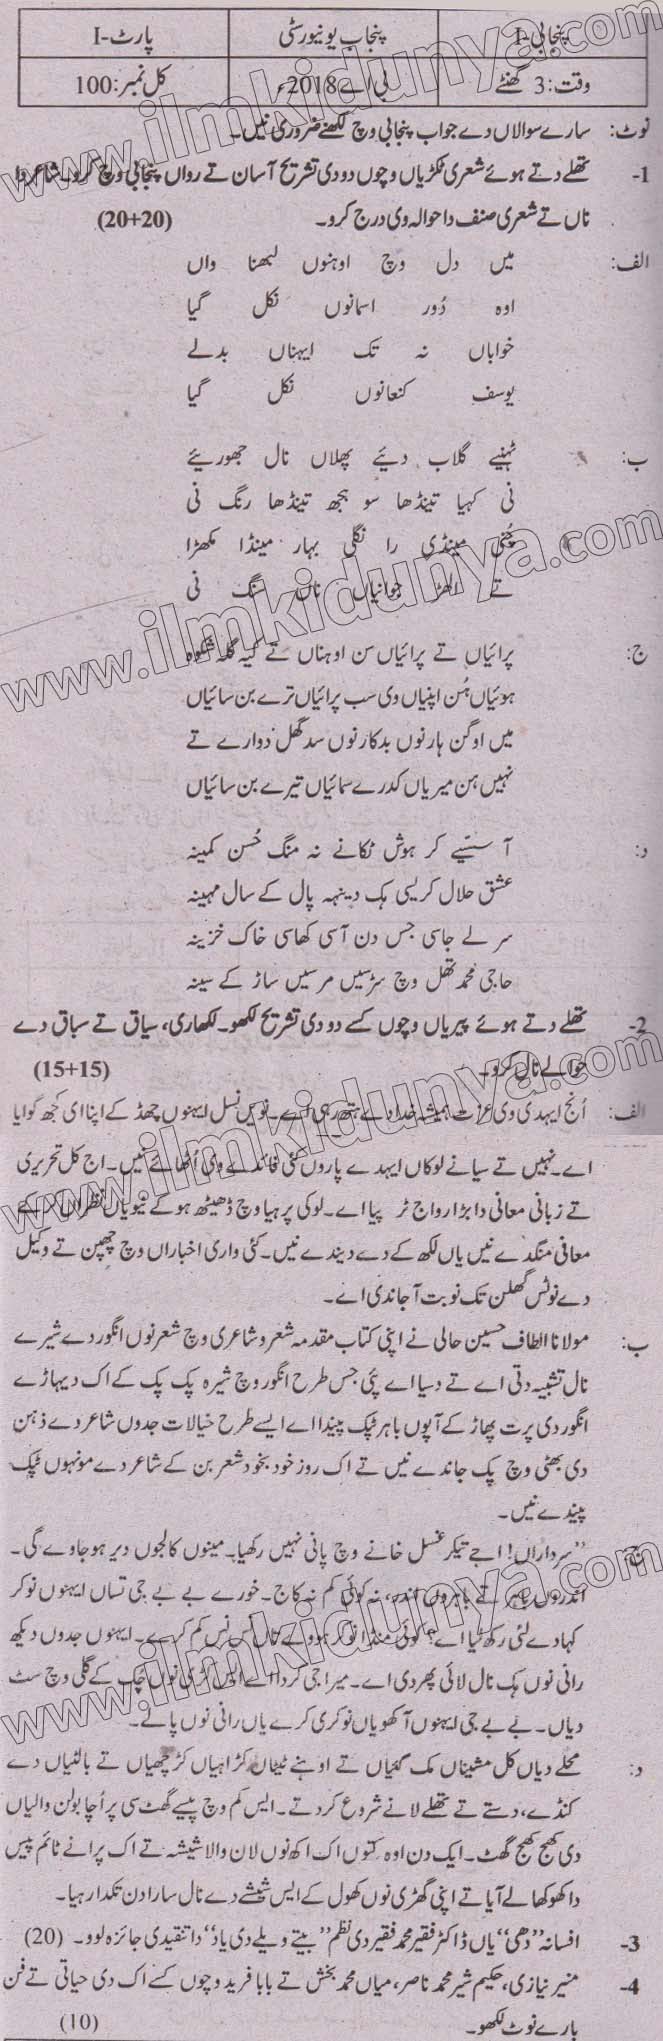 پنجابی-I پنجاب یونیورسٹی پارٹ-I
وقت: 3 گھنٹے بی اے 2018ء کل نمبر: 100
نوٹ: سارے سوالاں دے جواب پنجابی وچ لکھنے ضروری نیں۔
1- تھلے دتے ہوئے شعری ٹکڑیاں وچوں دو دی تشریح آسان تے رواں پنجابی وچ کرو۔ شاعر دا
ناں تے شعری صنف دا حوالہ وی درج کرو۔ (20+20)
الف: میں دل وچ اوہنوں لبھنا واں
اوہ دُور اسمانوں نکل گیا
خواباں نہ تک ایہناں بدلے
یوسف کنعانوں نکل گیا
ب: ٹہنیے گلاب دئیے پھلاں نال جھوریئے
نی کہیا تینڈھا سو ہجھ تینڈھا رنگ نی
چُنی مینڈی را نگلی بہار مینڈا مکھڑا
تے الھڑ جوانیاں ناں سنگ نی
ج: پرائیاں تے پرائیاں سن اوہناں تے کیہ گلہ شکوہ
ہوئیاں ہُن اپنیاں وی سب پرائیاں ترے بن سائیاں
میں اوگن ہارنوں بدکارنوں سد گھل دوارے تے
نہیں ہن میریاں کدرے سمائیاں تیرے بن سائیاں
د: آ سسیے کر ہوش ٹکانے نہ منگ حُسن کمینہ
عشق حلال کریسی ہک دینہہ پال کے سال مہینہ
سر لے جاسی جس دن آسی کھاسی خاک خزینہ
حاجی محمد تھل وچ سڑسیں مرسیں ساڑ کے سینہ
2- تھلے دتے ہوئے پیریاں وچوں کسے دو دی تشریح لکھو۔ لکھاری، سیاق تے سباق دے
حوالے نال کرو۔ (15+15)
الف: اُنج ایہدی وی عزت ہمیشہ خدا دے ہتھ رہی اے۔ نویں نسل ایہنوں چھڈ کے اپنا ای کجھ گوایا
اے۔ نہیں تے سیانے لوکاں ایہدے پاروں کئی فائدے وی اُٹھائے نیں۔ اج کل تحریری
تے زبانی معافی دا بڑا رواج ٹر پیا اے۔ لوکی پرہیا وچ ڈھیٹھ ہو گے نیویاں نظراں کر کے
معافی منگدے نیں یاں لکھ کے دے دیندے نیں۔ کئی واری اخباراں وچ چھپن تے وکیل
دے نوٹس گھلن تک نوبت آ جاندی اے۔
ب: مولانا الطاف حسین حالی نے اپنی کتاب مقدمہ شعر و شاعری وچ شعر نوں انگور دے شیرے
نال تشبیہ دتی اے تے دسیا اے پئی جس طرح انگور وچ شیرہ پک پک کے اک دیہاڑے
انگور دی پرت پھاڑ کے آپوں باہر ٹپک پیندا اے ایسے طرح خیالات جدوں شاعر دے ذہن
دی بھٹی وچ پک جاندے نیں تے اک روز خود بخود شعر بن کے شاعر دے مونہوں ٹپک
پیندے نیں۔
ج: ”سرداراں! اجے تیکر غسل خانے وچ پانی نہیں رکھیا۔ مینوں کالجوں دیر ہو جاوے گی۔
اندروں باہر تے باہروں اندر، نہ کوئی کم نہ کاج۔ خورے بے بے جی تساں ایہنوں نوکر
کہا دے لئی رکھ لیا اے؟ کوئی منڈا نوکر ہووے تاں نس نس کم کرے۔ ایہنوں جدوں دیکھ
رانی نوں ہک نال لائی پھردی اے۔ میرا جی کردا اے ایس کڑی نوں چک کے گلی وچ سٹ
دیاں۔ بے بے جی ایہنوں آکھو یاں نوکری کرے یاں رانی نوں پالے۔
د: محلے دیاں کل مشیناں مک گئیاں تے اوہنے ٹیٹاں کڑاہیاں کڑچھیاں تے بالٹیاں دے
کنڈے، دستے تے تھلے لانے شروع کر دتے۔ ایس کم وچ پیسے گھٹ سی پر اُچا بولن والیاں
دی کھچ کھچ گھٹ۔ ایک دن اوہ کتوں اک اکھ نوں لان والا شیشہ تے اک پرانے ٹائم پیس
دا کھوکھا لے آیا تے اپنی گھڑی نوں کھول کے ایس شیشے دے نال سارا دن تکدا رہیا۔
3- افسانہ ”دھی“ یاں ڈاکٹر فقیر محمد فقیر دی نظم ”بیتے ویلے دی یاد“ دا تنقیدی جائزہ لوو۔ (20)
4- منیر نیازی، حکیم شیر محمد ناصر، میاں محمد بخش تے بابا فرید وچوں کسے اک دی حیاتی تے فن
بارے نوٹ لکھو۔ (10)
www.ilmkidunya.com
www.ilmkidunya.com
www.ilmkidunya.com
www.ilmkidunya.com